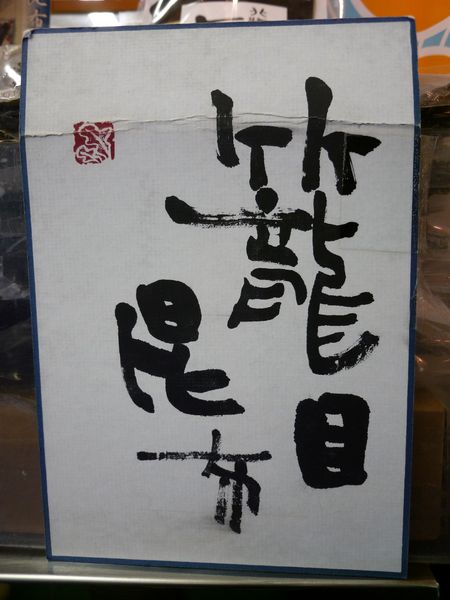 籠目
昆布